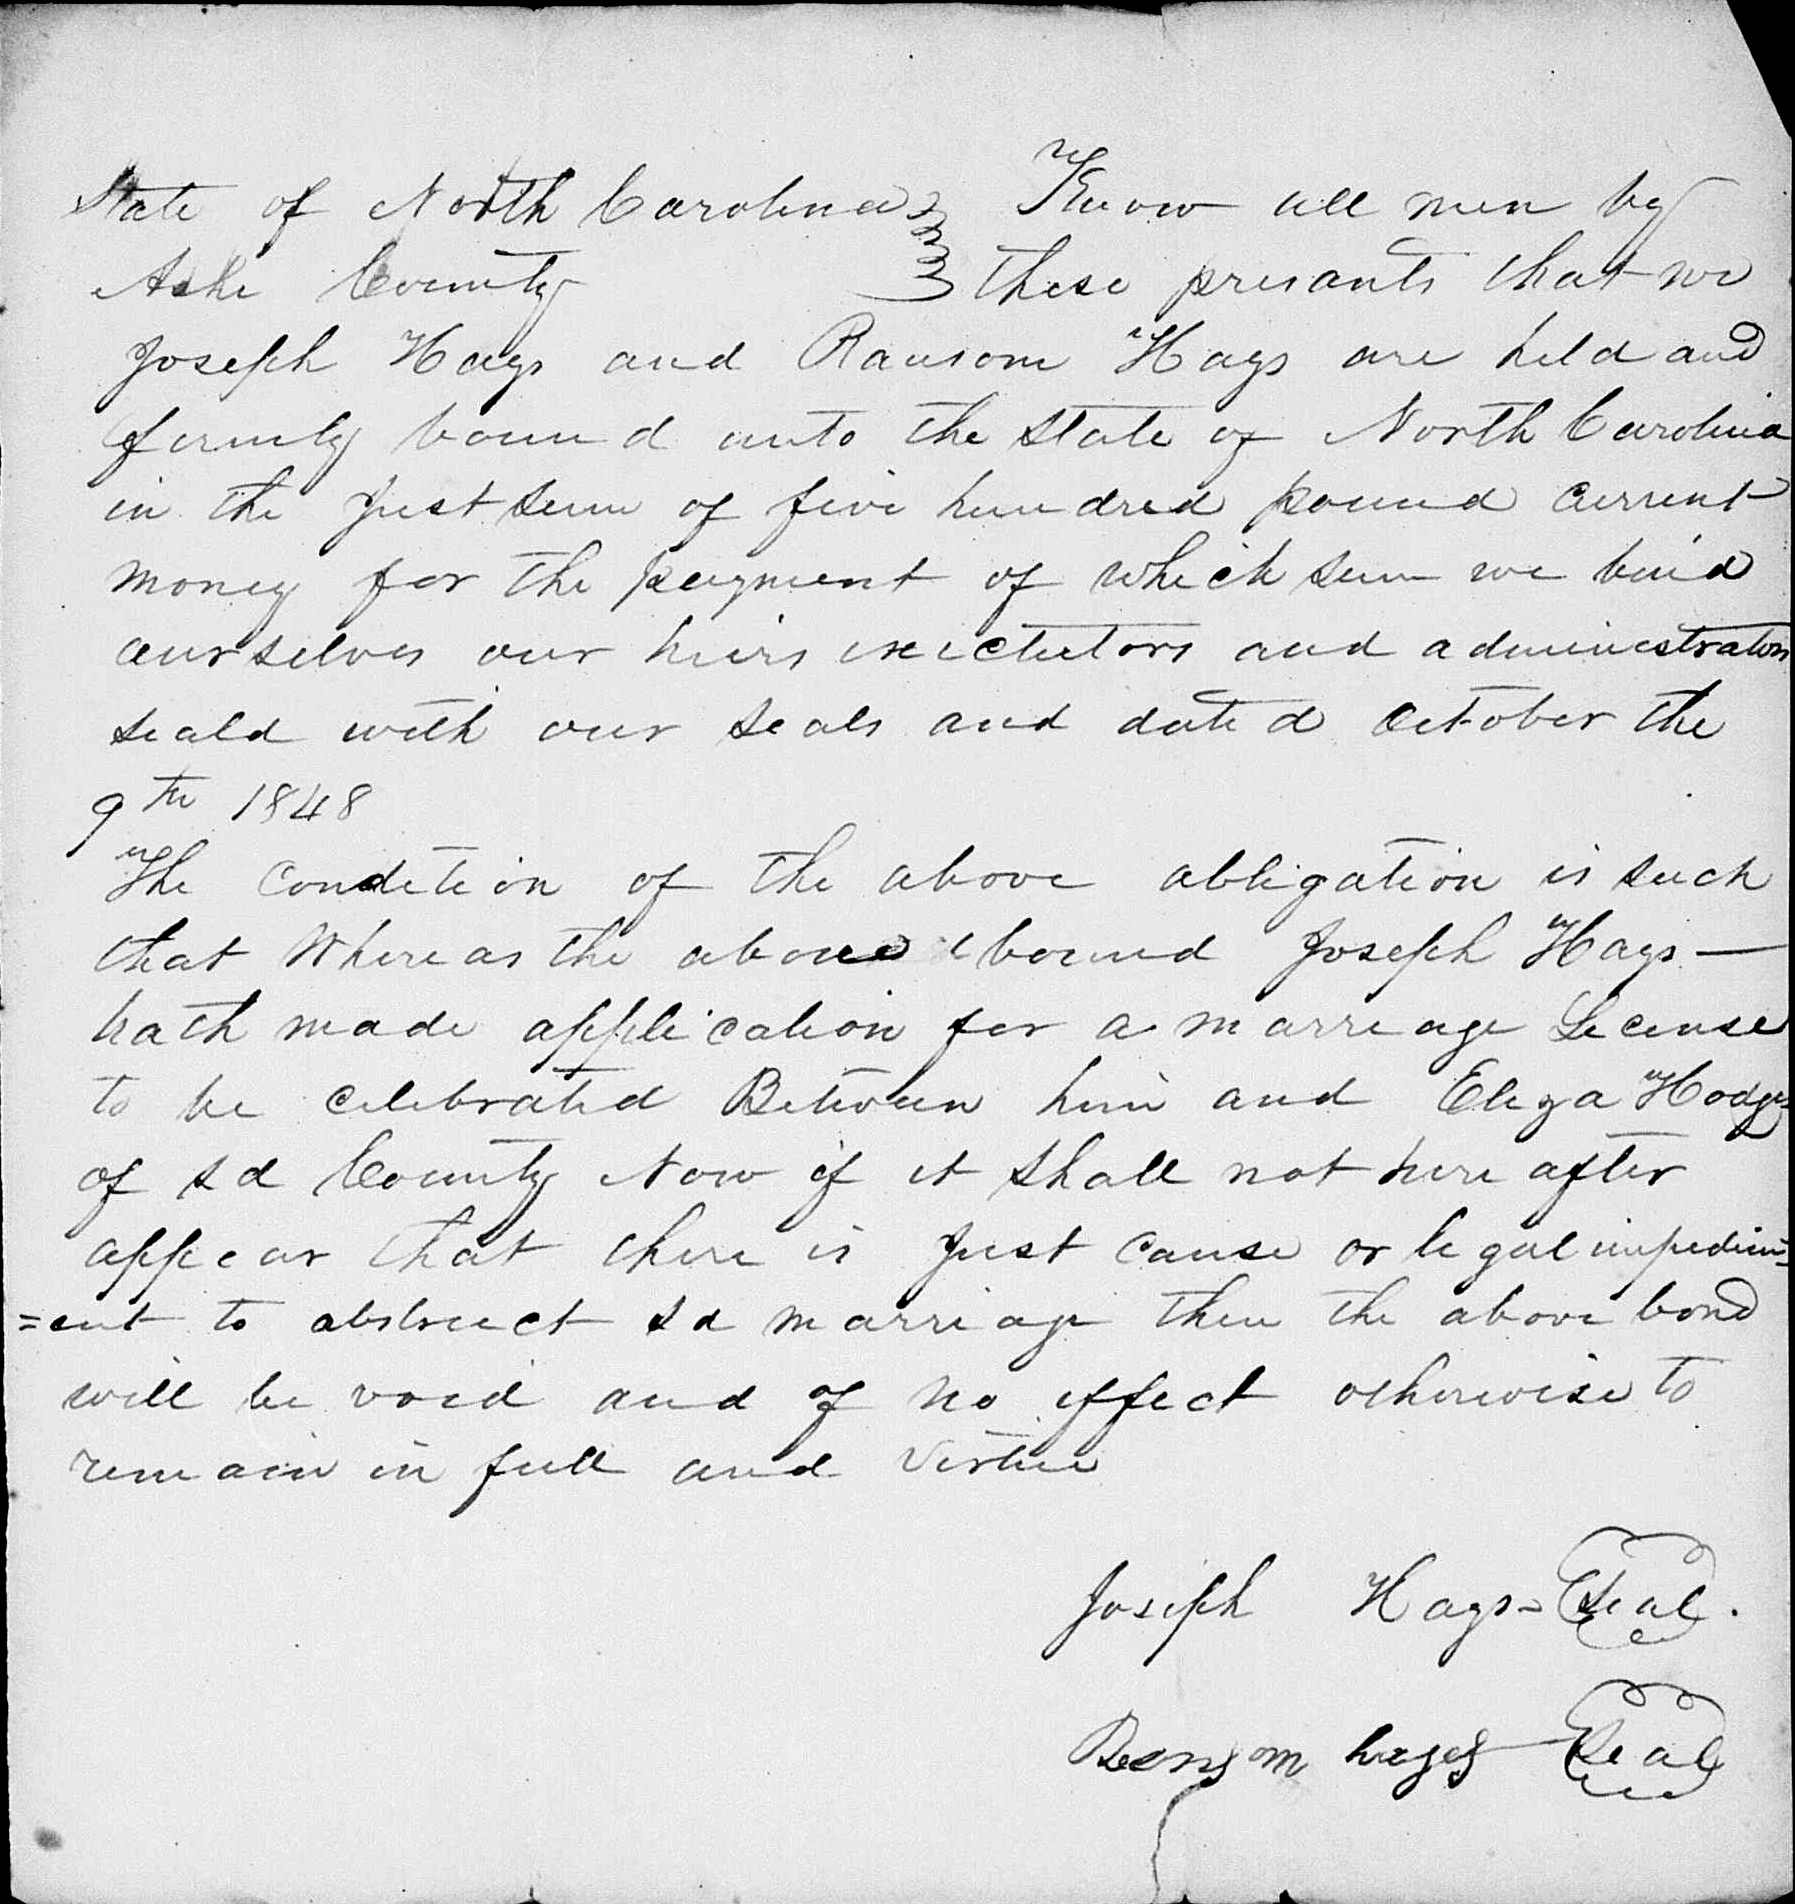 State of North Carolina Know all men by
Ashe County these presants that we
Joseph Hays and Ransom Hays are held and
firmly bound unto the State of North Carolina
in the Just sum of five hundred pound current
money for the payment of which sum we bind
ourselves our heirs exectutors and administrators
seald with our seals and dated October the
9th 1848
The Condition of the above obligation is such
that Whereas the above bound Joseph Hays —
hath made application for a marriage License
to be celebrated Between him and Eliza Hodges
of sd County Now if it shall not here after
appear that there is Just cause or legal impedim=
=ent to obstruct sd marriage then the above bond
will be void and of no effect otherwise to
remain in full and virtue
Joseph Hays = Seal.
Ransom hays Seal